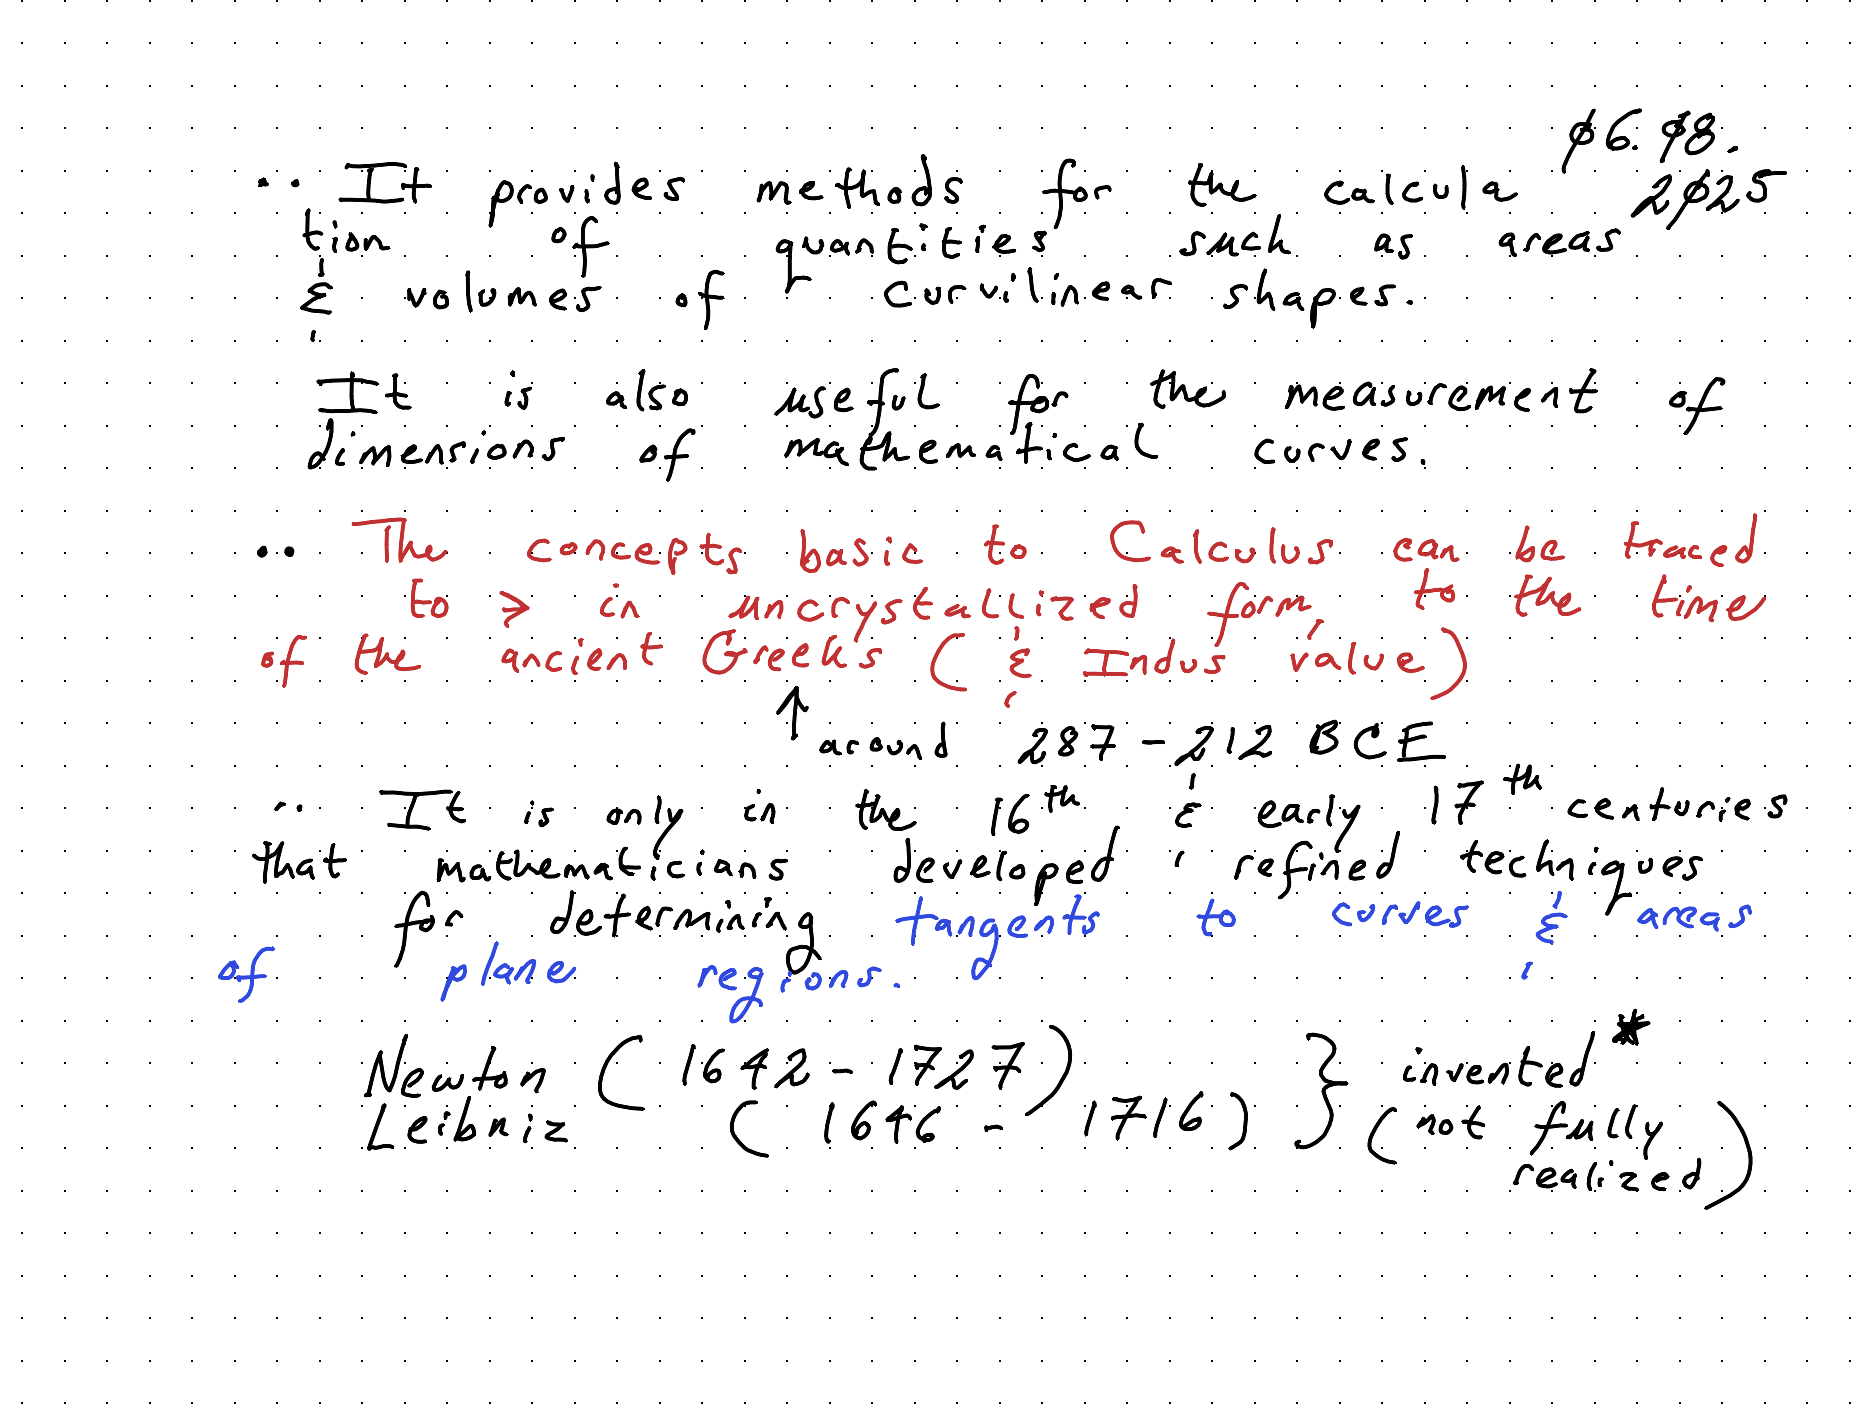 φ6. φ8.
·· It provides methods for the calcula 2φ25
tion of quantities such as areas
& volumes of curvilinear shapes.
It is also useful for the measurement of
dimensions of mathematical curves.
·· The concepts basic to Calculus can be traced
to > in uncrystallized form, to the time
of the ancient Greeks ( & Indus value )
↑ around 287 - 212 BCE
·· It is only in the 16th & early 17th centuries
that mathematicians developed refined techniques
for determining tangents to curves & areas
of plane regions.
Newton ( 1642 - 1727 ) } invented *
Leibniz ( 1646 - 1716 ) ( not fully
realized )